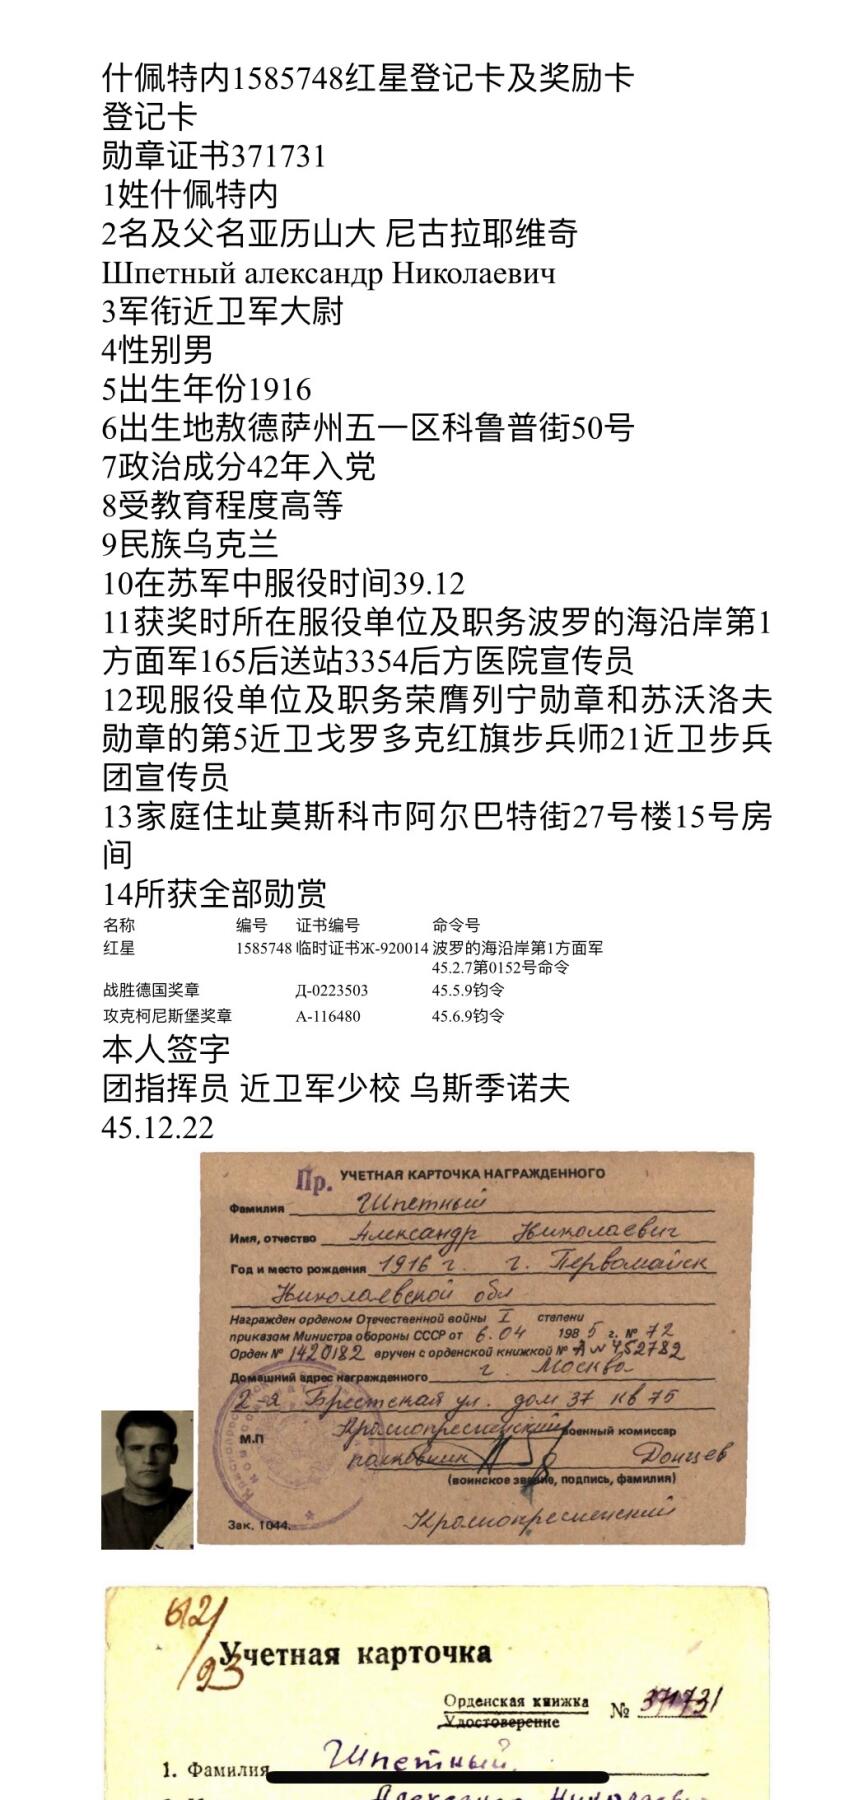 什佩特内1585748红星登记卡及奖励卡
登记卡
勋章证书371731
1姓什佩特内
2名及父名亚历山大 尼古拉耶维奇
Шпетный александр Николаевич
3军衔近卫军大尉
4性别男
5出生年份1916
6出生地敖德萨州五一区科鲁普街50号
7政治成分42年入党
8受教育程度高等
9民族乌克兰
10在苏军中服役时间39.12
11获奖时所在服役单位及职务波罗的海沿岸第1
方面军165后送站3354后方医院宣传员
12现服役单位及职务荣膺列宁勋章和苏沃洛夫
勋章的第5近卫戈罗多克红旗步兵师21近卫步兵
团宣传员
13家庭住址莫斯科市阿尔巴特街27号楼15号房
间
14所获全部勋赏
名称 编号 证书编号 命令号
红星 1585748 临时证书Ж-920014 波罗的海沿岸第1方面军
45.2.7第0152号命令
战胜德国奖章 Д-0223503 45.5.9钧令
攻克柯尼斯堡奖章 А-116480 45.6.9钧令
本人签字
团指挥员 近卫军少校 乌斯季诺夫
45.12.22
Пр. УЧЕТНАЯ КАРТОЧКА НАГРАЖДЕННОГО
Фамилия Шпетный
Имя, отчество Александр Николаевич
Год и место рождения 1916 г. г. Первомайск
Николаевской обл
Награжден орденом Отечественной войны I степени
приказом Министра обороны СССР от 6.04 1985 г. № 72
Орден № 1420182 вручен с орденской книжкой № А № 452782
Домашний адрес награжденного г. Москва
2-я Брестская ул. дом 37 кв 75
М.П Краснопресненский военный комиссар
полковник Донцев
(воинское звание, подпись, фамилия)
Зак. 1044. Краснопресненский
Учетная карточка
Орденская книжка
Удостоверение № 371731
1. Фамилия Шпетный